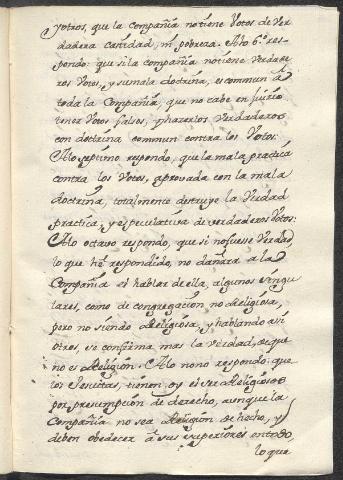 y otros, que la compañia no tiene Votos de Ver
dadera castidad, ni pobreza. Alo 6º. res-
pondo: que si la compañia no tiene Verdade
ros Votos, y su mala doctrina, es commun â
toda la Compañia, que no cabe en juicio
tener Votos falsos, y hazerlos Verdaderos
con doctrina commun contra los Votos:
Alo septimo respondo, que la mala practica
contra los Votos, aprovada con la mala
doctrina, totalmente destruye la Verdad
practica, y especulativa de verdaderos Votos:
Alo octavo respondo, que si no fuesse Verdad
lo que hê respondido, no dañara a la
Compañia el hablar de ella, algunos singu
lares, como de congregación no Religiosa,
pero no siendo Religiosa, y hablando assi
otros, se confirma mas la verdad, de que
no es Religion. Alo nono respondo: que
los Jesuitas, tienen, oy el ser Religiosos
por presumpcion de derecho, aunque la
Compañia no sea Religion de hecho, y
deben obedecer â sus superiores en todo,
lo que